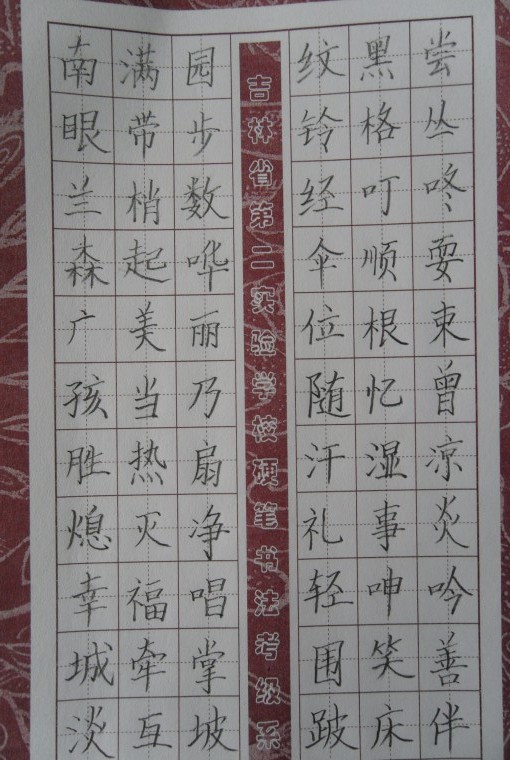 南满园
眼带步
兰梢数
森起哗
广美丽
孩当乃
胜热扇
熄灭净
幸福唱
城牵掌
淡互坡
吉林省第二实验学校硬笔书法考级系
纹黑尝
铃格丛
经叮咚
伞顺耍
位根束
随忆曾
汗湿凉
礼事炎
轻呻吟
围笑善
跛床伴